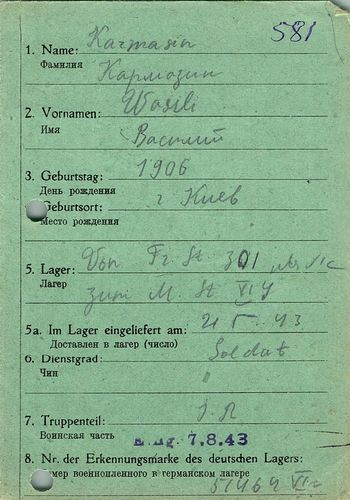 581
1. Name: Karmasin
Фамилия Кармозин
2. Vornamen: Wasili
Имя Василий
3. Geburtstag: 1906
День рождения
Geburtsort: г Киев
Место рождения
5. Lager: Von Fr. St. 301
Лагер zum M. St VI
5a. Im Lager eingeliefert am: 21 5. 43
Доставлен в лагер (число)
6. Dienstgrad: Soldat
Чин
7. Truppenteil: I. R
Воинская часть 7.8.43
8. Nr. der Erkennungsmarke des deutschen Lagers:
мер военнопленного в германском лагере
51464